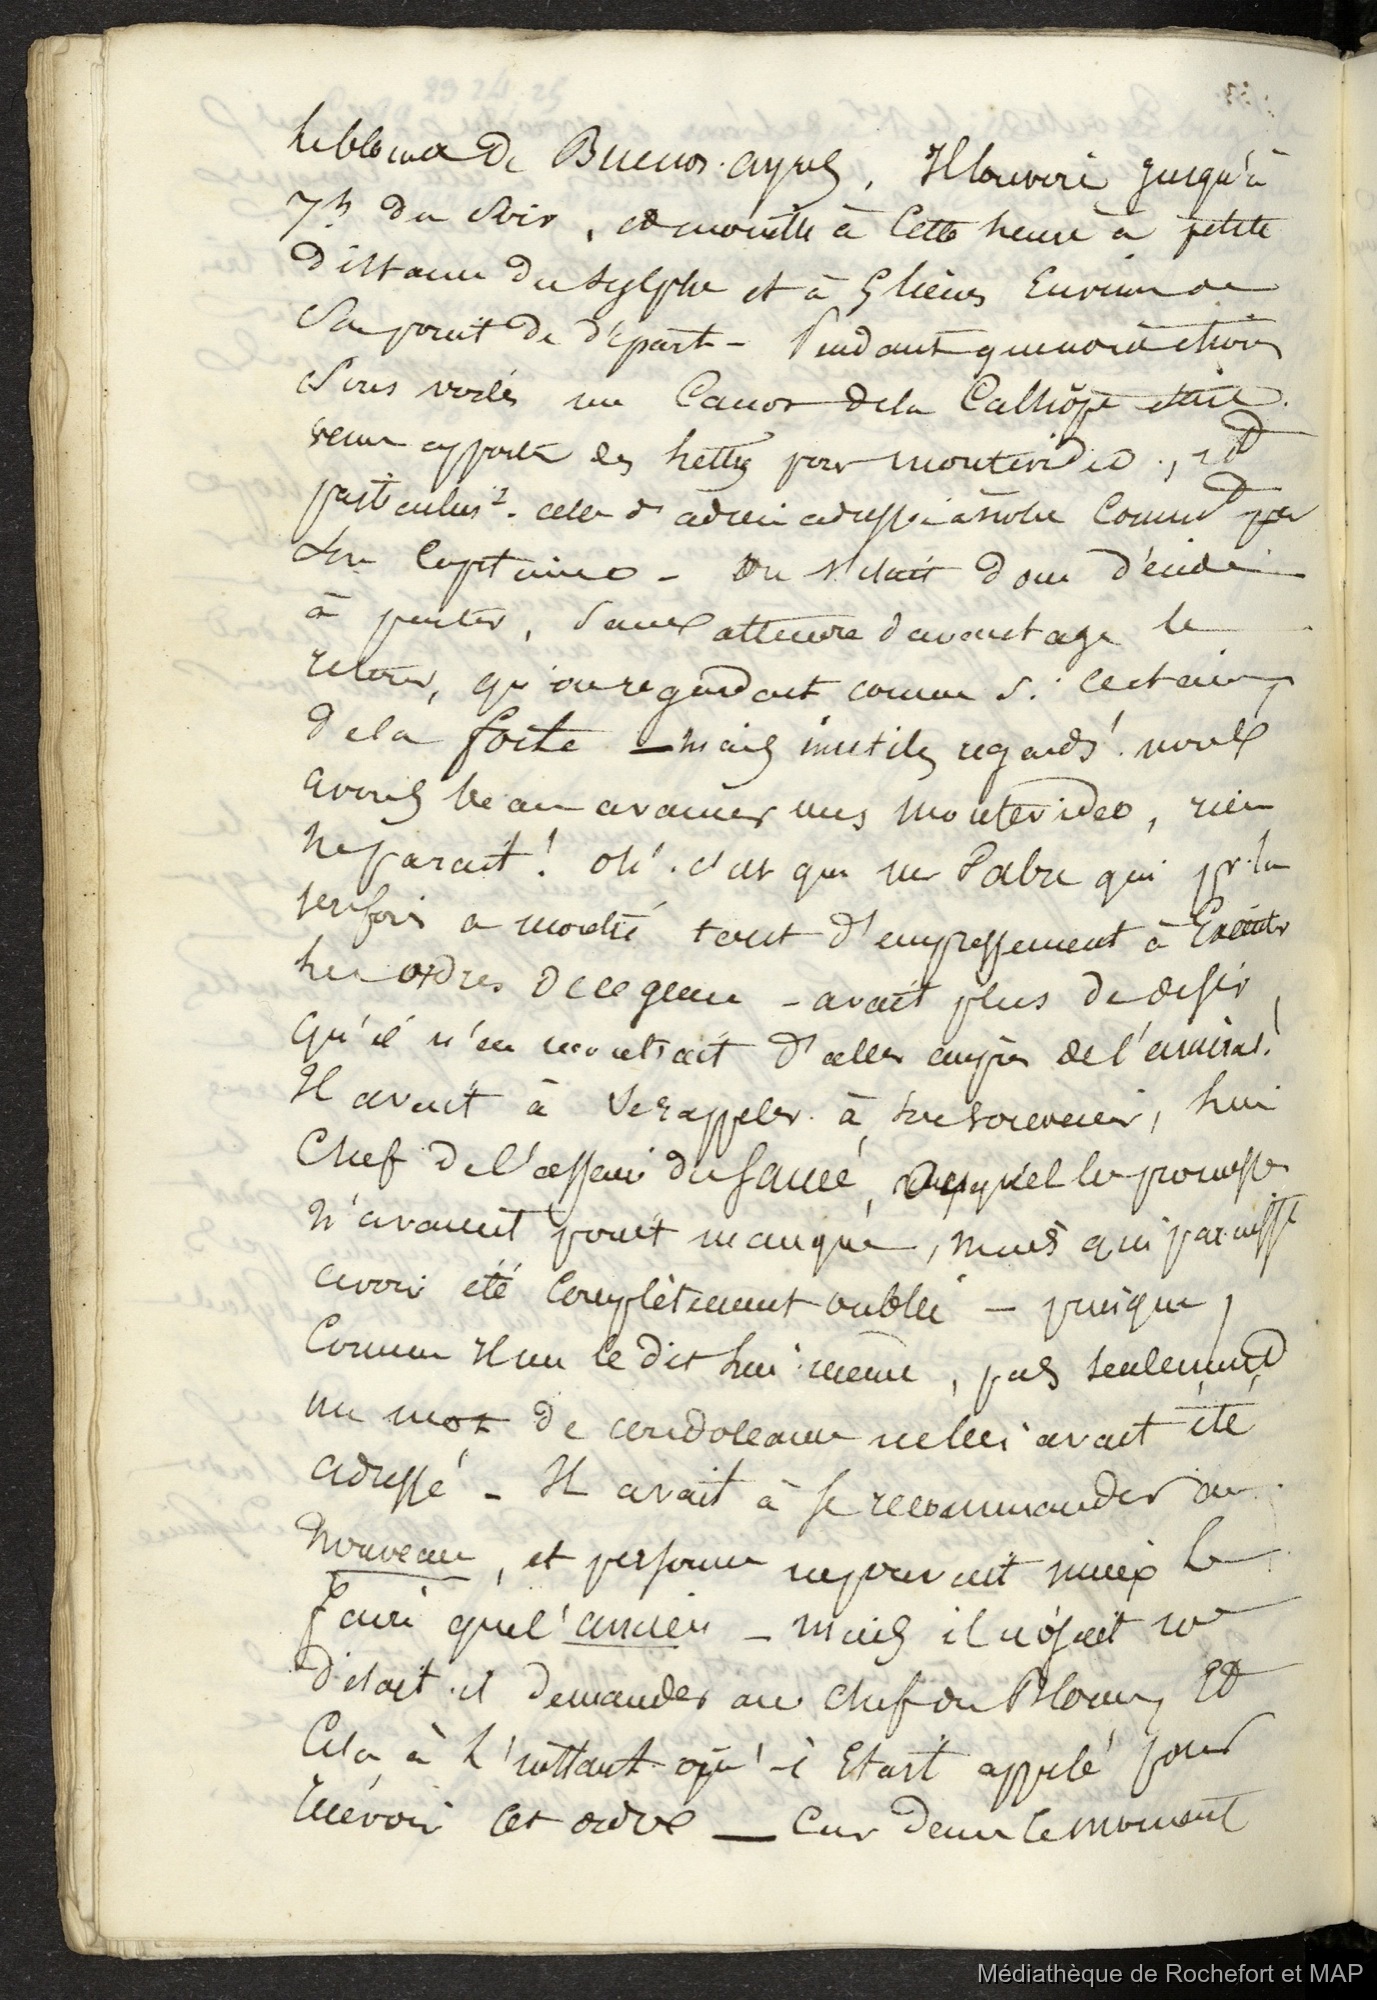 le blocus de Buenos-ayres, Il louvoie jusqu'à
7h du soir, et mouille à cette heure à petite
distance du sylphe et à 5 lieues environ de
son point de départ - Pendant que nous étions
sous voiles un canot de la Calliope était
venu apporter des lettres pour montevideo, et
particulièrt. celle d' adieu adressée à notre Commd par
son Capitaine - On s'était donc décidé
à partir, sans attendre davantage le
retour, qu'on regardait comme si certain,
de la forte - mais inutiles regards! nous
avons beau avancer vers montevideo, rien
ne parait! oh! c'est que mr Pabre qui pr la
1ere fois a montré tant d'empressement à Exécuter
les ordres de ce genre - avait plus de desir
qu'il n'en montrait d'aller auprès de l'amiral!
Il avait à se rappeler à son souvenir, lui
Chef de l'affaire du Sauce, auquel les promesses
n'avaient point manqué, mais qui paraisst
avoir été complètement oublié - puisque,
comme il me le dit lui même, pas seulement
un mot de condoléance ne lui avait été
adressé - Il avait à se recommander au
nouveau, et personne ne pouvait mieux le
faire que l'ancien - mais il n'osait se
disait-il demander au chef du Blocus, et
Cela à l'instant où il était appelé pour
recevoir cet ordre - Car dans ce moment
Médiathèque de Rochefort et MAP